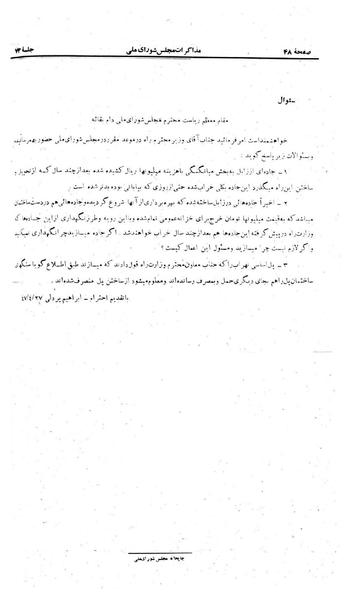 صفحهٔ ۴۸ مذاکرات مجلس شورای ملی جلسهٔ ۷۳
سئوال
مقام معظم ریاست محترم مجلس شورای ملی دام بقائه
خواهشمند است امر فرمائید جناب آقای وزیر محترم راه در موعد مقرر در مجلس شورای ملی حضور بهم رسانیده
و بسئوالات زیر پاسخ گویند :
۱ - جاده‌ای از زابل به بخش میانگنگی با هزینه میلیونها ریال کشیده شده بعد از چند سال که از تجویز و
ساختن این راه میگذرد این جاده بکل خراب شده حتی از روزی که بیابانی بوده بدتر شده است .
۲ - اخیراً جاده‌هائی در زابل ساخته شده که بهره برداری از آنها شروع گردیده و جاده‌هائی هم در دست ساختمان
میباشد که بقیمت میلیونها تومان خرج برای خزانه عمومی تمام شده و با این رویه و طرز نگهداری از این جاده‌ها که
وزارت راه در پیش گرفته این جاده‌ها هم بعد از چند سال خراب خواهند شد . اگر جاده میسازید چرا نگهداری نمیکنید
و اگر لازم نیست چرا میسازید و مسئول این اعمال کیست ؟
۳ - پل اساسی نهراب را که جناب معاون محترم وزارت راه قول دادند که میسازند طبق اطلاع گویا سنگهای
ساختمان پل را هم جای دیگری حمل و بمصرف رسانده‌اند و معلوم میشود از ساختن پل منصرف شده‌اند .
با تقدیم احترام - ابراهیم پردلی ۴۷/۴/۲۷
چاپخانه مجلس شورای ملی